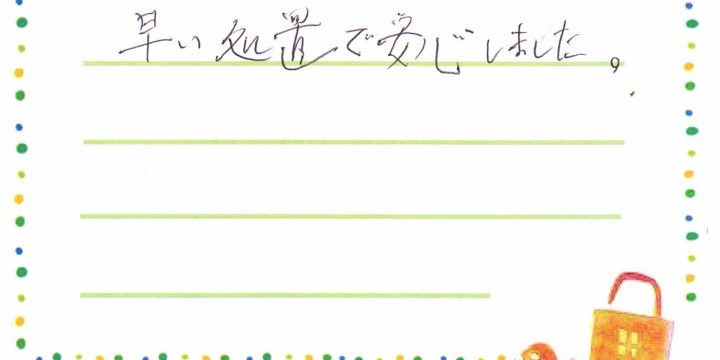 早い処置で安じました。